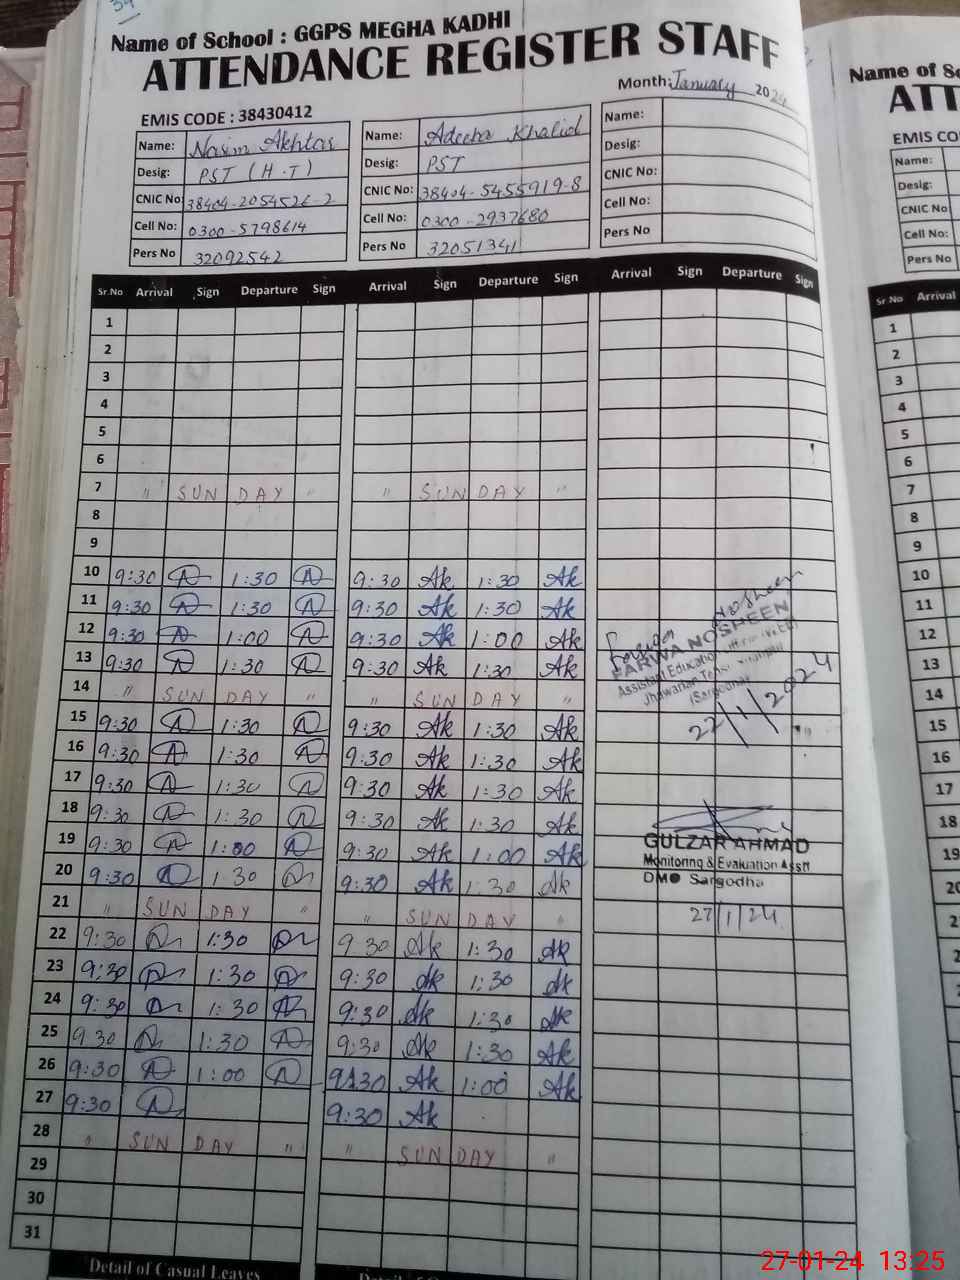 Name of School : GGPS MEGHA KADHI
ATTENDANCE REGISTER STAFF
Month: January 2024
EMIS CODE : 38430412
Name: Nasim Akhtar Name: Adeeba Khalid Name:
Desig: PST (H.T) Desig: PST Desig:
CNIC No: 38404-2054526-2 CNIC No: 38404-5455919-8 CNIC No:
Cell No: 0300-5798614 Cell No: 0300-2937680 Cell No:
Pers No 32092542 Pers No 32051341 Pers No
Sr.No Arrival Sign Departure Sign Arrival Sign Departure Sign Arrival Sign Departure Sign
1
2
3
4
5
6
7 " SUNDAY " " SUNDAY "
8
9
10 9:30 1:30 9:30 Ak 1:30 Ak
11 9:30 1:30 9:30 Ak 1:30 Ak
12 9:30 1:00 9:30 Ak 1:00 Ak
13 9:30 1:30 9:30 Ak 1:30 Ak
14 " SUNDAY " " SUNDAY "
15 9:30 1:30 9:30 Ak 1:30 Ak
16 9:30 1:30 9:30 Ak 1:30 Ak
17 9:30 1:30 9:30 Ak 1:30 Ak
18 9:30 1:30 9:30 Ak 1:30 Ak
19 9:30 1:00 9:30 Ak 1:00 Ak
20 9:30 1:30 9:30 Ak 1:30 Ak
21 " SUNDAY " " SUNDAY "
22 9:30 1:30 9 30 Ak 1:30 Ak
23 9:30 1:30 9:30 Ak 1:30 Ak
24 9:30 1:30 9:30 Ak 1:30 Ak
25 9 30 1:30 9:30 Ak 1:30 Ak
26 9:30 1:00 9:30 Ak 1:00 Ak
27 9:30 9:30 Ak
28 " SUNDAY " " SUNDAY "
29
30
31
Nosheen
FARWA NOSHEEN
Assistant Education
Jhawarian
(Sargodha)
22/1/2024
GULZAR AHMAD
Monitoring & Evaluation Asstt
DMO Sargodha
27/1/24
Detail of Casual Leaves
Name of
EMIS CO
Name:
Desig:
CNIC No
Cell No:
Pers No
Sr.No Arrival
1
2
3
4
5
6
7
8
9
10
11
12
13
14
15
16
17
18
19
20
27-01-24 13:25